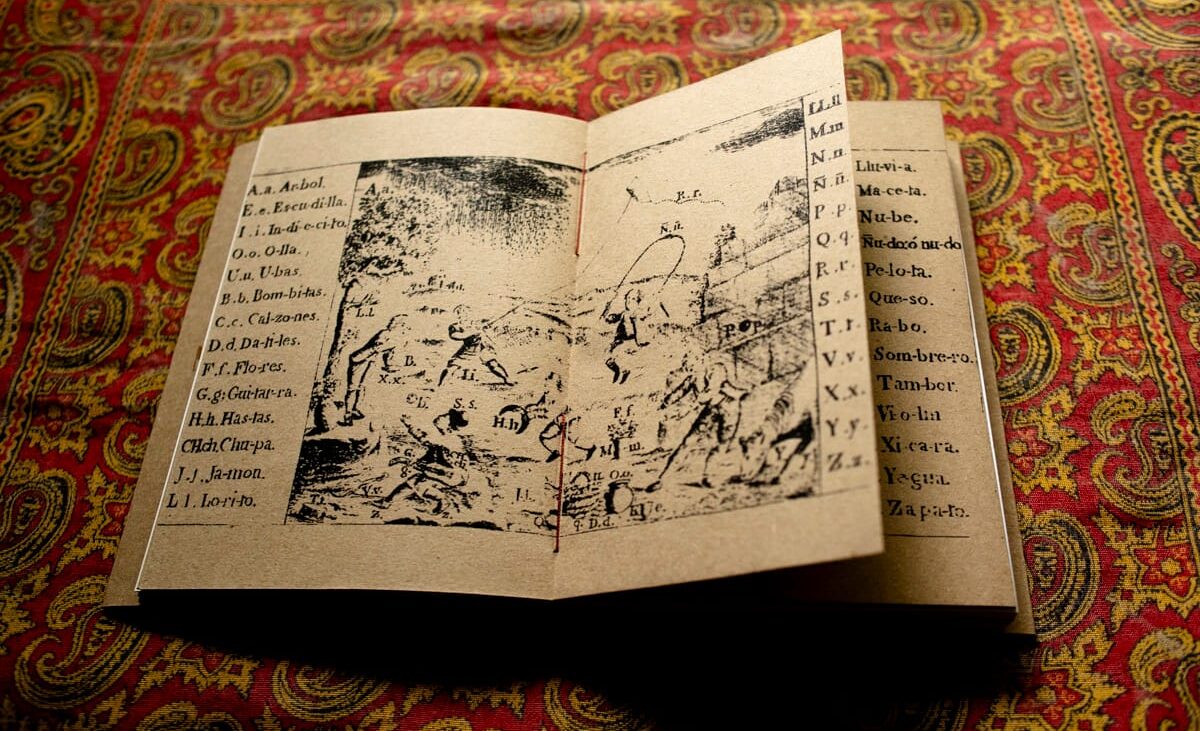 A.a. Ar-bol.
E.e. Es-cu-di-lla.
I.i. In-di-e-ci-to.
O.o. O-lla.
U.u. U-bas.
B.b. Bom-bi-tas.
C.c. Cal-zo-nes.
D.d. Da-ti-les.
F.f. Flo-res.
G.g. Gui-tar-ra.
H.h. Has-tas.
CH.ch. Chu-pa.
J.j. Ja-mon.
L.l. Lo-ri-to.
A.a.
B.
X.x.
S.s.
H.h.
R.r.
Ñ.ñ.
P.p.
F.f.
O.o.
D.d.
LL.ll
M.m
N.n.
Ñ.ñ.
P.p.
Q.q.
R.r.
S.s.
T.t.
V.v.
X.x.
Y.y.
Z.z.
Llu-vi-a.
Ma-ce-ta.
Nu-be.
Ñu-do: ó nu-do
Pe-lo-ta.
Que-so.
Ra-bo.
Som-bre-ro.
Tam-bor.
Vi-o-lin
Xi-ca-ra.
Ye-gua.
Za pa-to.